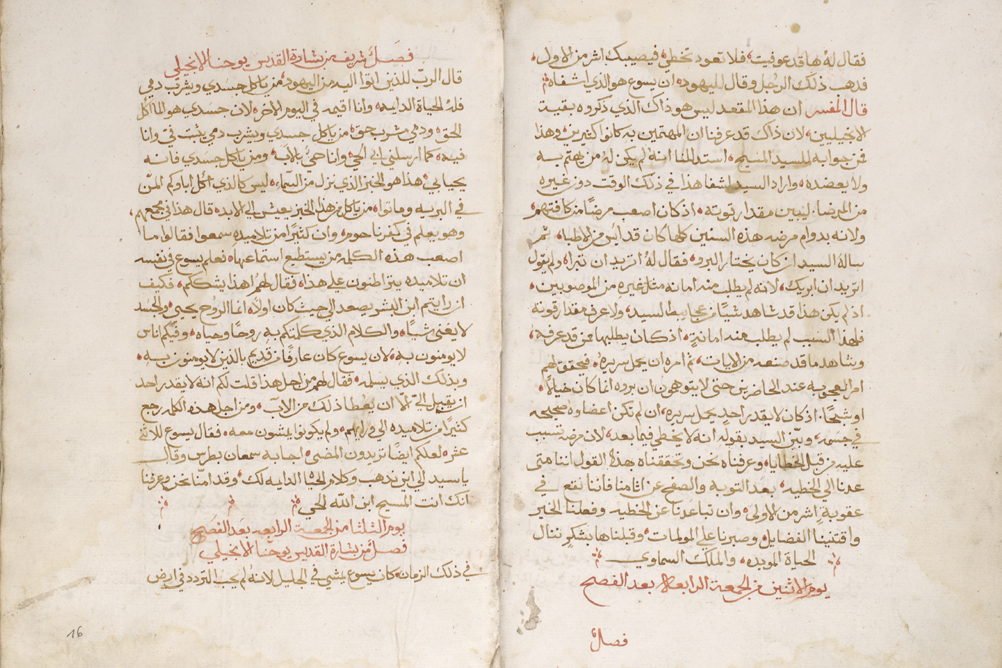 فقال له ها قد عوفيت فلا تعود تخطي فيصيبك اشر من الاول
فذهب ذلك الرجل وقال لليهود ان يسوع هو الذي اشفاه
قال المفسر ان هذا المقعد ليس هو ذاك الذي ذكروه بقية
الانجيليين لان ذاك قد عرفنا ان المهتمين به كانوا كثيرين وهذا
فمن جوابه للسيد المسيح استدللنا انه لم يكن له من يهتم به
ولا يعضده واراد السيد لشفا هذا في ذلك الوقت دون غيره
من المرضا ليبين مقدار قوته اذ كان اصعب مرضا من كافتهم
ولانه بدوام مرضه هذه السنين كلها كان قد ايس من الاطبا ثم
ساله السيد ان كان يختار البرو فقال له اتريد ان تبرا ولم يقول
اتريد ان ابريك لانه لم يطلب منه امانه مثل غيره من الموصوبين
اذ لم يكن هذا قد شاهد شيا من عجايب السيد ولا عرف مقدار قوته
فلهذا السبب لم يطلب منه امانه اذ كان يطلبها من قد عرفه
وشاهد ما قد صنعه من الايات ثم امره ان يحمل سريره فحقق لهم
امر العجوبه عند الحاضرين حتى لا يتوهمون ان بروه انما كان خيالا
او شبحا اذ كان لا يقدر احد يحمل سريره ان لم تكن اعضاوه صحيحه
في جسمه وبين السيد بقوله انه لا يخطي فيما بعد لان مرضه تسبب
عليه من قبل الخطايا وعرفناه نحن وتحققناه هذا القول اننا متى
عدنا الى الخطيه بعد التوبه والصفح عن اثامنا فاننا نقع في
عقوبة اشر من الاولى وان تباعدنا عن الخطيه وفعلنا الخير
واقتنينا الفضايل وصبرنا على الموملات وقبلناها بشكر ننال
الحياة الموبده والملك السماوي
يوم الاثنين من الجمعة الرابعة بعد الفصح
فصل
فصل شريف من بشارة القديس يوحنا الانجيلي
قال الرب للذين اتوا اليه من اليهود من ياكل جسدي ويشرب دمي
فله الحياة الدايمه وانا اقيمه في اليوم الاخر لان جسدي هو الماكل
الحق ودمي مشرب حق من ياكل جسدي ويشرب دمي يثبت في وانا
فيه كما ارسلني ابي الحي وانا حي بالاب ومن ياكل جسدي فانه
يحيا بي هذا هو الخبز الذي نزل من السماء ليس كالذي اكل اباوكم المن
في البريه وماتوا من ياكل من هذا الخبز يعيش الى الابد قال هذا في مجمع
وهو يعلم في كفرناحوم وان كثيرا من تلاميذه سمعوا فقالوا ما
اصعب هذه الكلمه من يستطيع استماعها فعلم يسوع في نفسه
ان تلاميذه يتراطنون على هذا فقال لهم اهذا يشككم فكيف
ان رايتم ابن البشر يصعد الى حيث كان اولا انما الروح يحيي والجسد
لا يغني شيا والكلام الذي كلمتكم به روحا وحياه وفيكم اناس
لا يومنون به لان يسوع كان عارفا من قديم بالذين لا يومنون به
وبذلك الذي يسلمه فقال لهم من اجل هذا قلت لكم انه لا يقدر احد
ان يقبل الي الا ان يعطا ذلك من الاب ومن اجل هذه الكلمه رجع
كثيرا من تلاميذه الى ورايهم ولم يكونوا يمشون معه فقال يسوع للاثني
عشر لعلكم ايضا تريدون المضي اجابه سمعان بطرس وقال
يا سيد الى اين نذهب وكلام الحيا الدايمه لك وقد امنا نحن وعرفنا
انك انت المسيح ابن الله الحي
يوم الثلثا من الجمعة الرابعه بعد الفصح
فصل من بشارة القديس يوحنا الانجيلي
في ذلك الزمان كان يسوع يمشي في الجليل لانه لم يحب التردد في ارض
16